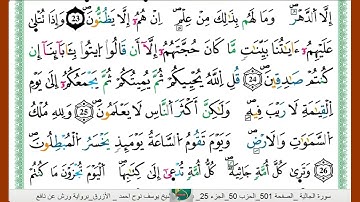 إِلَّا اَ۬لدَّهْرُۖ وَمَا لَهُم بِذَٰلِكَ مِنْ عِلْمٍۖ اِنْ هُمُۥٓ إِلَّا يَظُنُّونَۖ 23 وَإِذَا تُتْلَىٰ
عَلَيْهِمُۥٓ ءَايَٰتُنَا بَيِّنَٰتٖ مَّا كَانَ حُجَّتَهُمُۥٓ إِلَّآ أَن قَالُوا۟ اُ۪يتُوا۟ بِـَٔابَآئِنَآ إِن
كُنتُمْ صَٰدِقِينَۖ 24 قُلِ اِ۬للَّهُ يُحْيِيكُمْ ثُمَّ يُمِيتُكُمْ ثُمَّ يَجْمَعُكُمُۥٓ إِلَىٰ يَوْمِ
اِ۬لْقِيَٰمَةِ لَا رَيْبَ فِيهِۖ وَلَٰكِنَّ أَكْثَرَ اَ۬لنَّاسِ لَا يَعْلَمُونَۖ 25 وَلِلهِ مُلْكُ
اُ۬لسَّمَٰوَٰتِ وَالَارْضِۖ وَيَوْمَ تَقُومُ اُ۬لسَّاعَةُ يَوْمَئِذٖ يَخْسَرُ اُ۬لْمُبْطِلُونَۖ
26 وَتَرَىٰ كُلَّ أُمَّةٖ جَاثِيَةٗۖ كُلُّ أُمَّةٖ تُدْعَىٰٓ إِلَىٰ كِتَٰبِهَاۖ اَ۬لْيَوْمَ تُجْزَوْنَ مَا كُنتُمْ
سورة الجاثية _الصفحة 501_الحزب 50_الجزء 25_ الشيخ يوسف نوح احمد _ الأزرق_برواية ورش عن نافع